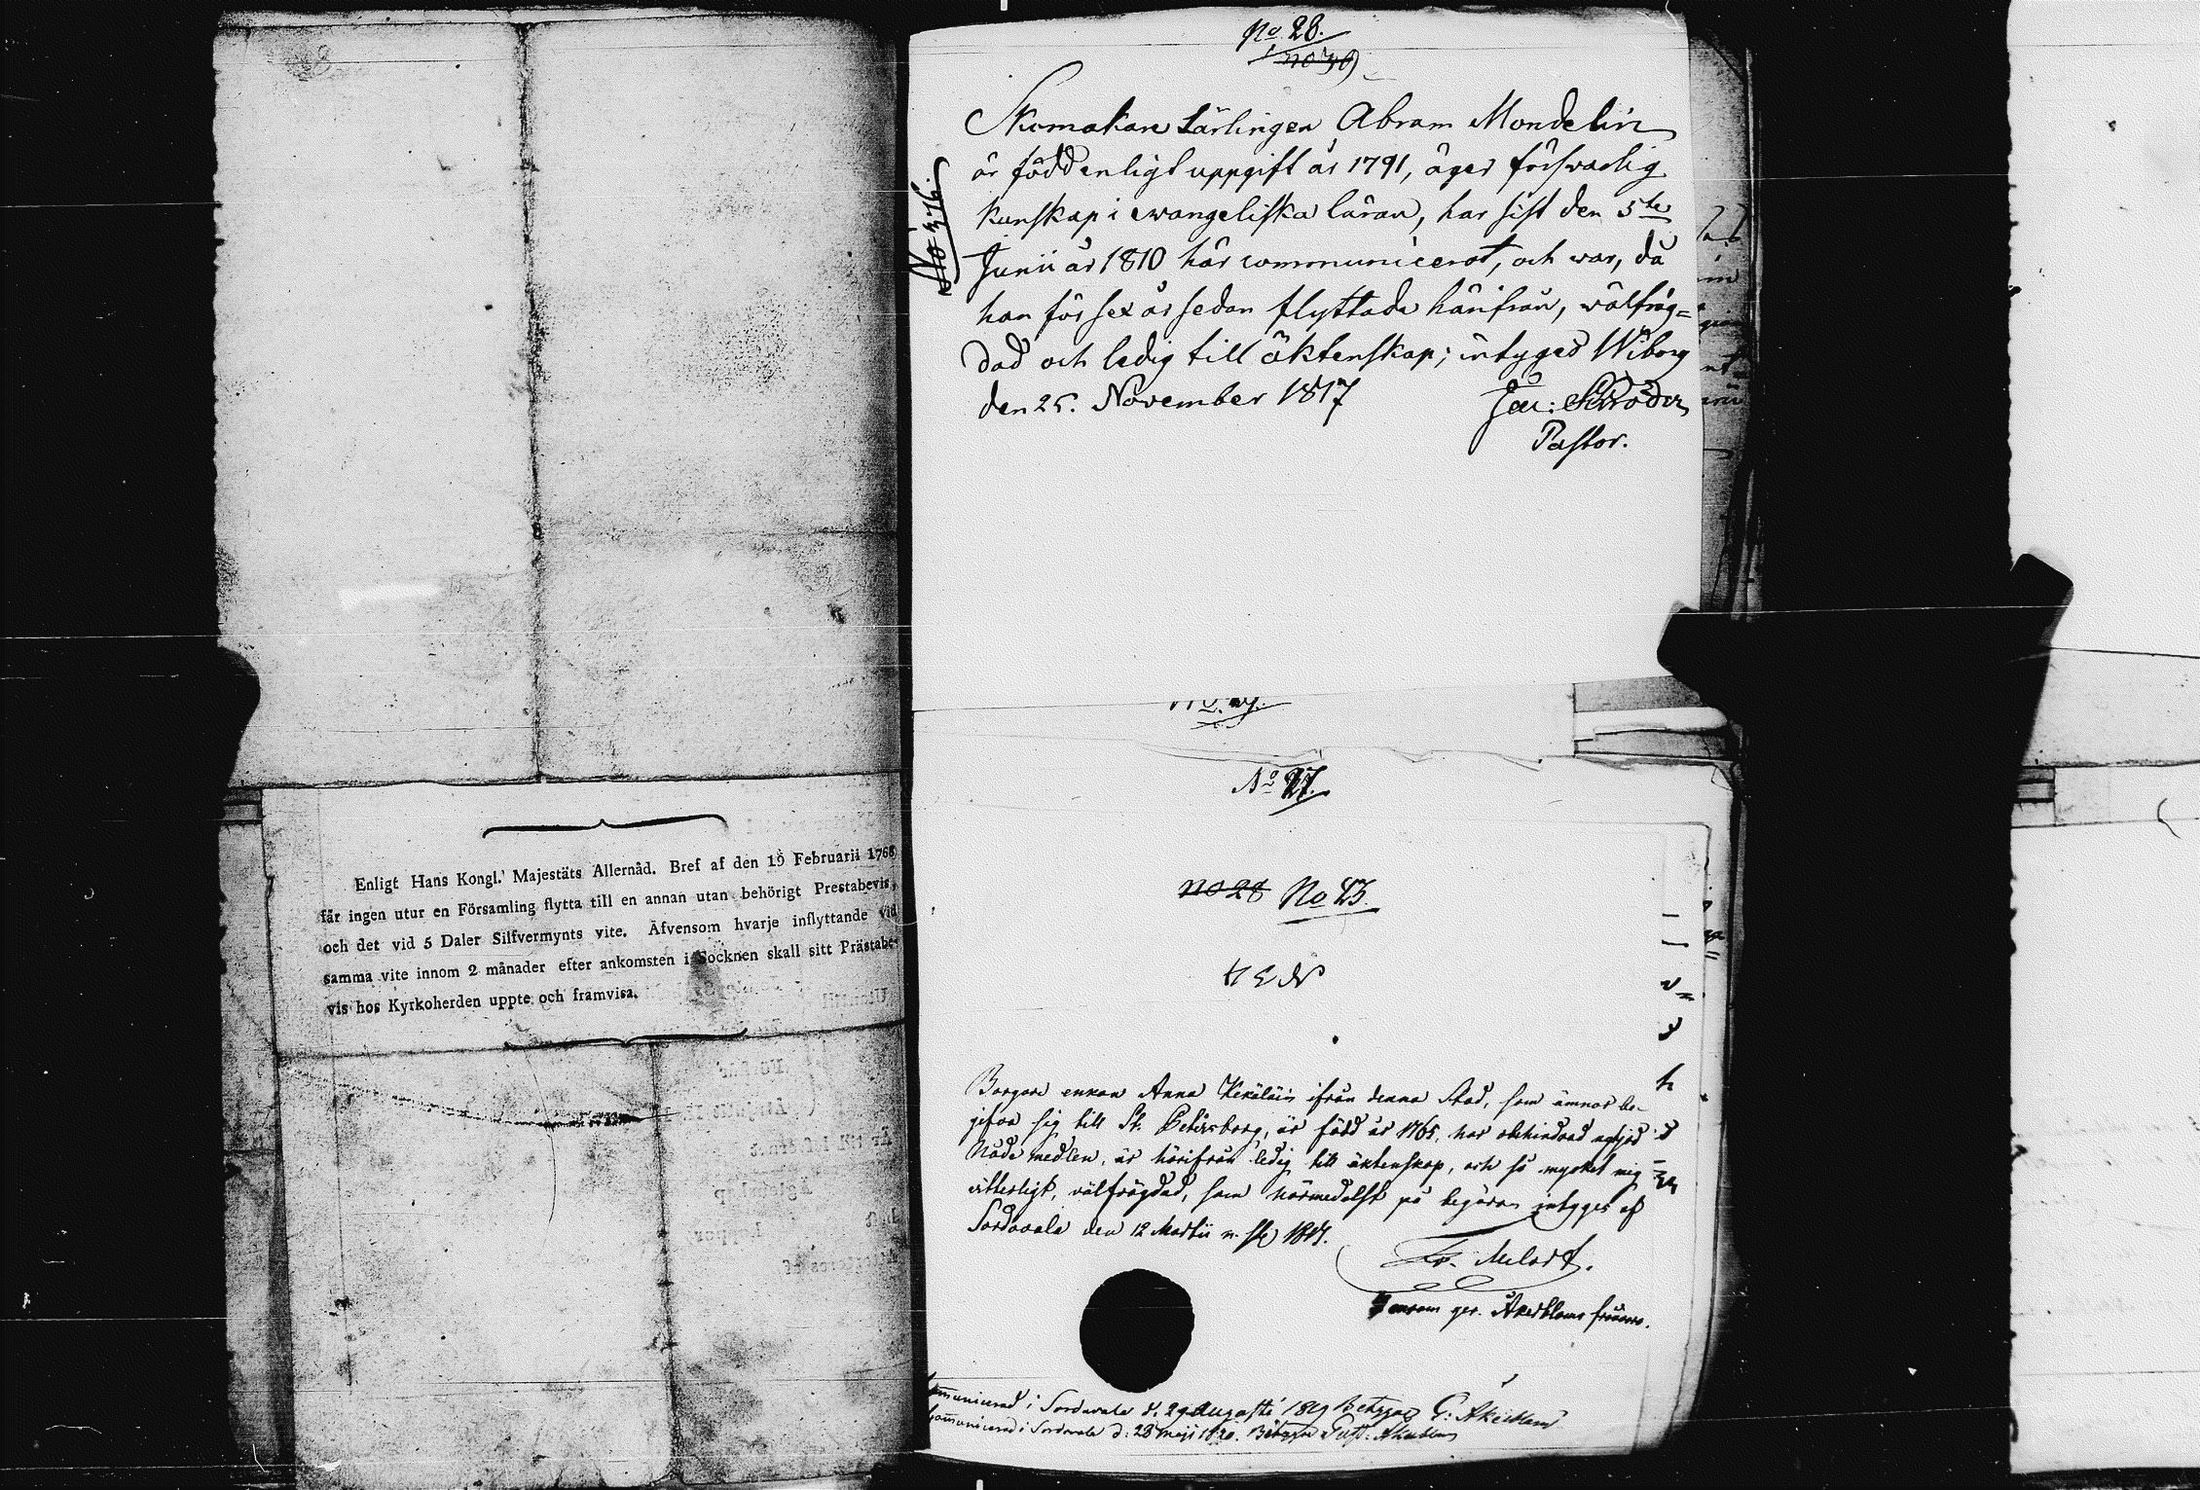 Enligt Hans Kongl. Majestäts Allernåd. Bref af den 19 Februarii 1768
får ingen utur en Församling flytta till en annan utan behörigt Prestabevis,
och det vid 5 Daler Silfvermynts vite. Äfvensom hvarje inflyttande vid
samma vite innom 2 månader efter ankomsten i Socknen skall sitt Prästabe-
vis hos Kyrkoherden uppte och framvisa.
No 28.
no 30
No 376.
Skomakare Lärlingen Abram Mondelin
är född enligt uppgift år 1791, äger förswarlig
kunskap i ewangeliska läran, har sist den 5te
Junii år 1810 här communicerat, och war, då
han för sex år sedan flyttade härifrån, wälfräg=
dad och ledig till äktenskap; intygas Wiborg
den 25. November 1817
Jac: Schröder
Pastor.
No 27.
no 28 No 43.
Borgare enkan Anna Kekäläin ifrån denna Stad, som ämnar be-
gifva sig till St. Petersborg, är född år 1765, har obehindrad
Nåde medlen, är härifrån ledig till äktenskap, och så mycket mig
vitterligt, välfrägdad, som härmedelst på begäran intygas af
Sordavala den 12 Martii n. st. 1817.
Melart.
ger. Åkerbloms frånvaro.
Communicerad i Sordavala d. 29 Augusti 1819 Betygar G: Åkerblom
Communicerad i Sordavala d: 28 Maji 1820. Betygar Gust: Åkerblom